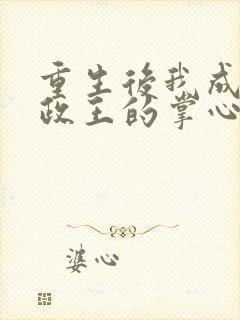 重生後我成
政王的掌心
婆心